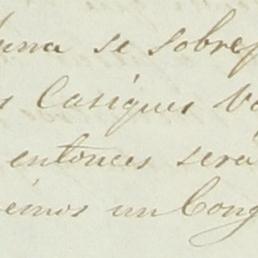 se sobrep
Casiques
entonces será
emos un Cong